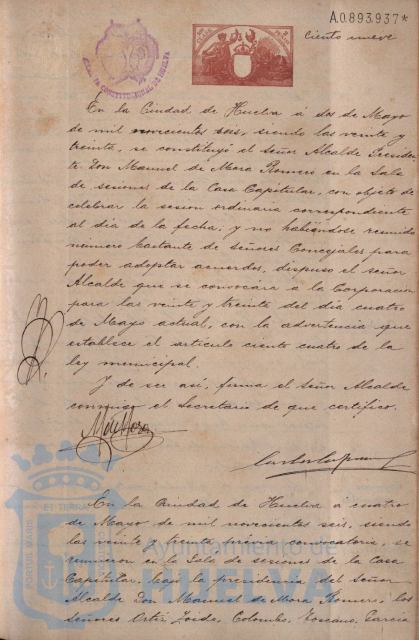 A.0.893.937*
ciento nueve
En la Ciudad de Huelva á dos de Mayo
de mil novecientos seis, siendo las veinte y
treinta, se constituyó el señor Alcalde Presiden-
te Don Manuel de Mora Romero en la Sala
de sesiones de la Casa Capitular, con objeto de
celebrar la sesion ordinaria correspondiente
al dia de la fecha, y no habiendose reunido
número bastante de señores Concejales para
poder adoptar acuerdos, dispuso el señor
Alcalde que se convocára á la Corporacion
para las veinte y treinta del dia cuatro
de Mayo actual, con la advertencia que
establece el artículo ciento cuatro de la
ley municipal.
Y de ser así, firma el Señor Alcalde
conmigo el Secretario de que certifico.
M de Mora
En la Ciudad de Huelva á cuatro
de Mayo de mil novecientos seis, siendo
las veinte y treinta prévia convocatoria, se
reunieron en la Sala de sesiones de la Casa
Capitular, bajo la presidencia del Señor
Alcalde Don Manuel de Mora Romero, los
Señores Colombo, Toscano, Garcia
PORTUS MARIS
ET TERRAE
Ayuntamiento de
HUELVA